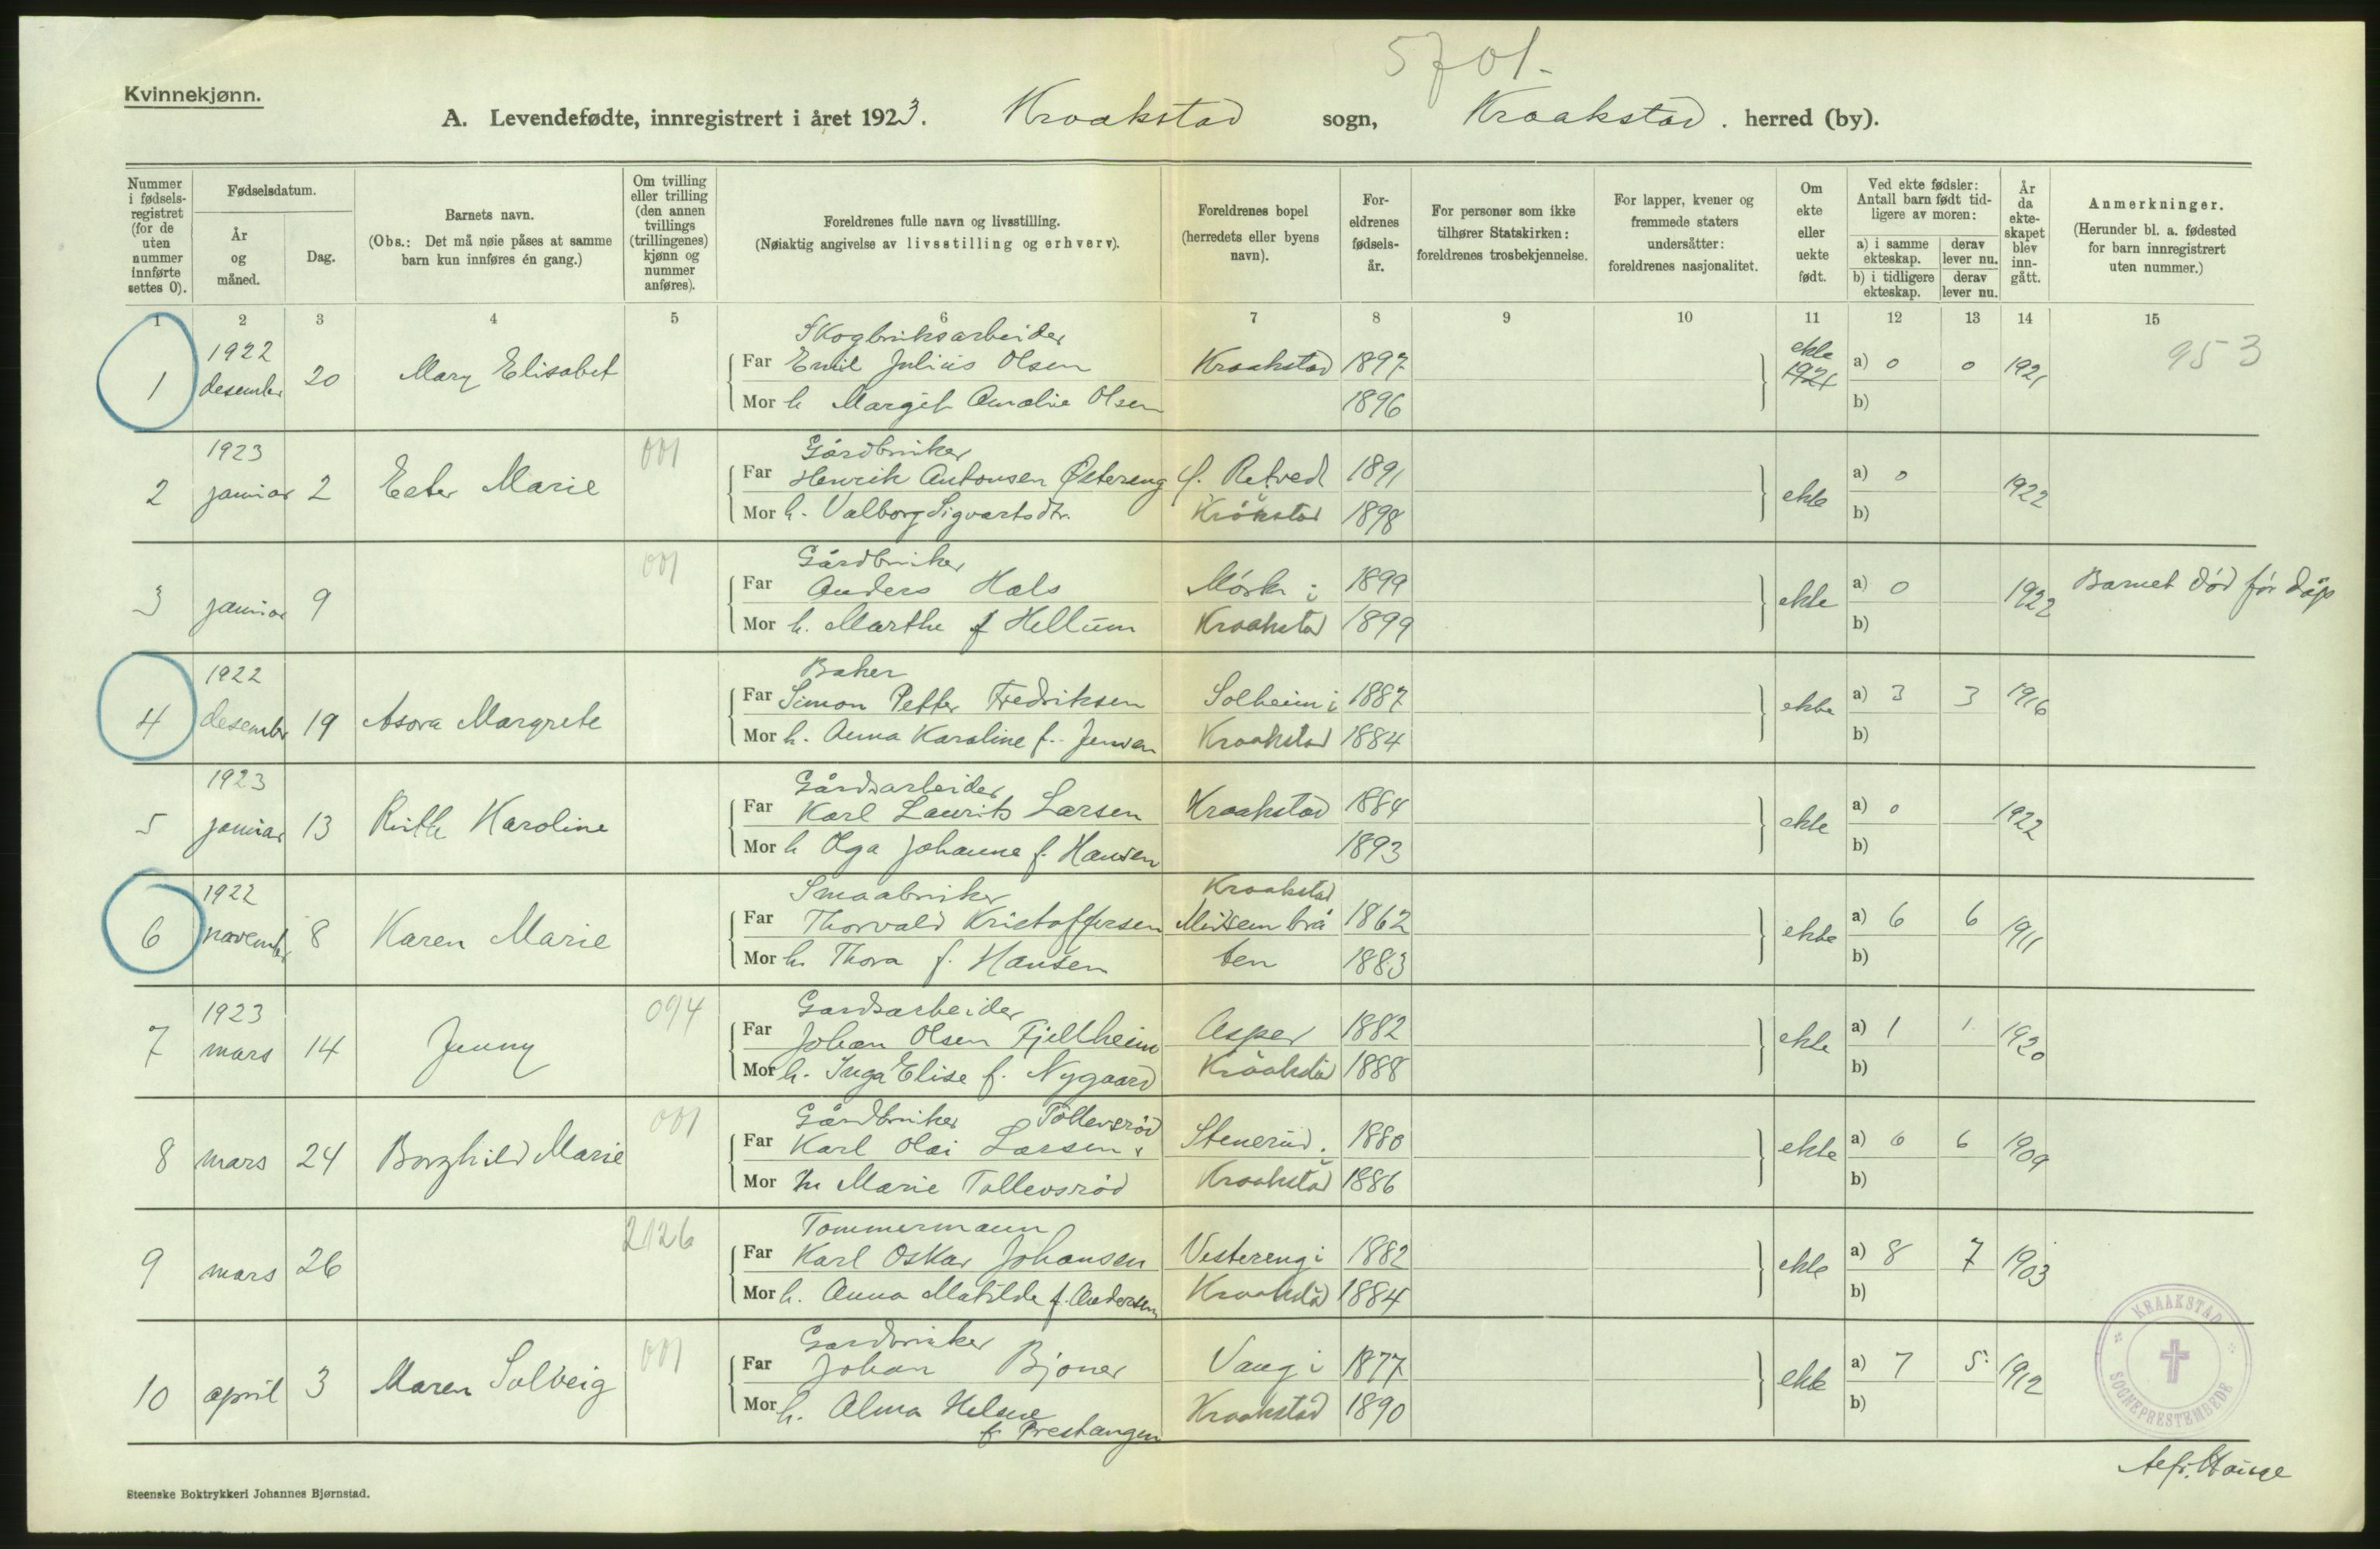 5701.
Kvinnekjønn.
A. Levendefødte, innregistrert i året 1923. Kraakstad sogn, Kraakstad. herred (by).
Nummer i fødsels-registret (for de uten nummer innførte settes 0).
Fødselsdatum.
År og måned.
Dag.
Barnets navn.
(Obs.: Det må nøie påses at samme barn kun innføres én gang.)
Om tvilling eller trilling (den annen tvillings (trillingenes) kjønn og nummer anføres).
Foreldrenes fulle navn og livsstilling.
(Nøiaktig angivelse av livsstilling og erhverv).
Foreldrenes bopel (herredets eller byens navn).
For-eldrenes fødsels-år.
For personer som ikke tilhører Statskirken: foreldrenes trosbekjennelse.
For lapper, kvener og fremmede staters undersåtter: foreldrenes nasjonalitet.
Om ekte eller uekte født.
Ved ekte fødsler: Antall barn født tid-ligere av moren:
a) i samme ekteskap.
derav lever nu.
b) i tidligere ekteskap.
derav lever nu.
År da ekte-skapet blev inn-gått.
Anmerkninger.
(Herunder bl. a. fødested for barn innregistrert uten nummer.)
1 2 3 4 5 6 7 8 9 10 11 12 13 14 15
Skogbruksarbeider
1 1922 desember 20 Mary Elisabet Far Emil Julius Olsen Kraakstad 1897 ekte 1921 a) 0 0 1921 953
Mor h Margit Amalie Olsen 1896 b)
Gårdbruker
2 1923 januar 2 Ester Marie 001 Far Henrik Antonsen Østereng f. Retved 1891 ekte a) 0 1922
Mor h. Valborg Sigvartsdtr. Kråkstad 1898 b)
Gårdbruker
3 januar 9 001 Far Anders Hals Mørk i 1899 ekte a) 0 1922 Barnet død før dåp
Mor h. Marthe f Hellum Kraakstad 1899 b)
Baker
4 1922 desember 19 Asora Margrete Far Simon Petter Fredriksen Solheim i 1887 ekte a) 3 3 1916
Mor h. Anna Karoline f. Jensen Kraakstad 1884 b)
Gårdsarbeider
5 1923 januar 13 Ruth Karoline Far Karl Laurits Larsen Kraakstad 1884 ekte a) 0 1922
Mor h Olga Johanne f. Hansen 1893 b)
Smaabruker Kraakstad
6 1922 november 8 Karen Marie Far Thorvald Kristoffersen Midsem brå 1862 ekte a) 6 6 1911
Mor h. Thora f. Hansen ten 1883 b)
Gardsarbeider
7 1923 mars 14 Jenny 094 Far Johan Olsen Fjellheim Asper 1882 ekte a) 1 1 1920
Mor h. Inga Elise f. Nygaard Kraakstad 1888 b)
Gårdbruker Tollevsrød
8 mars 24 Borghild Marie 001 Far Karl Olai Larsen Stenerud. 1880 ekte a) 6 6 1909
Mor h Marie Tollevsrød Kraakstad 1886 b)
Tommermann
9 mars 26 2126 Far Karl Oskar Johansen Vestereng i 1882 ekte a) 8 7 1903
Mor h. Anna Matilde f. Andersen Kraakstad 1884 b)
Gardbruker
10 april 3 Maren Solveig 001 Far Johan Bjoner Vang i 1877 ekte a) 7 5 1912
Mor h. Alma Helene Kraakstad 1890 b)
f. Prestangen
KRAAKSTAD SOGNEPRESTEMBEDE
Steenske Boktrykkeri Johannes Bjørnstad.